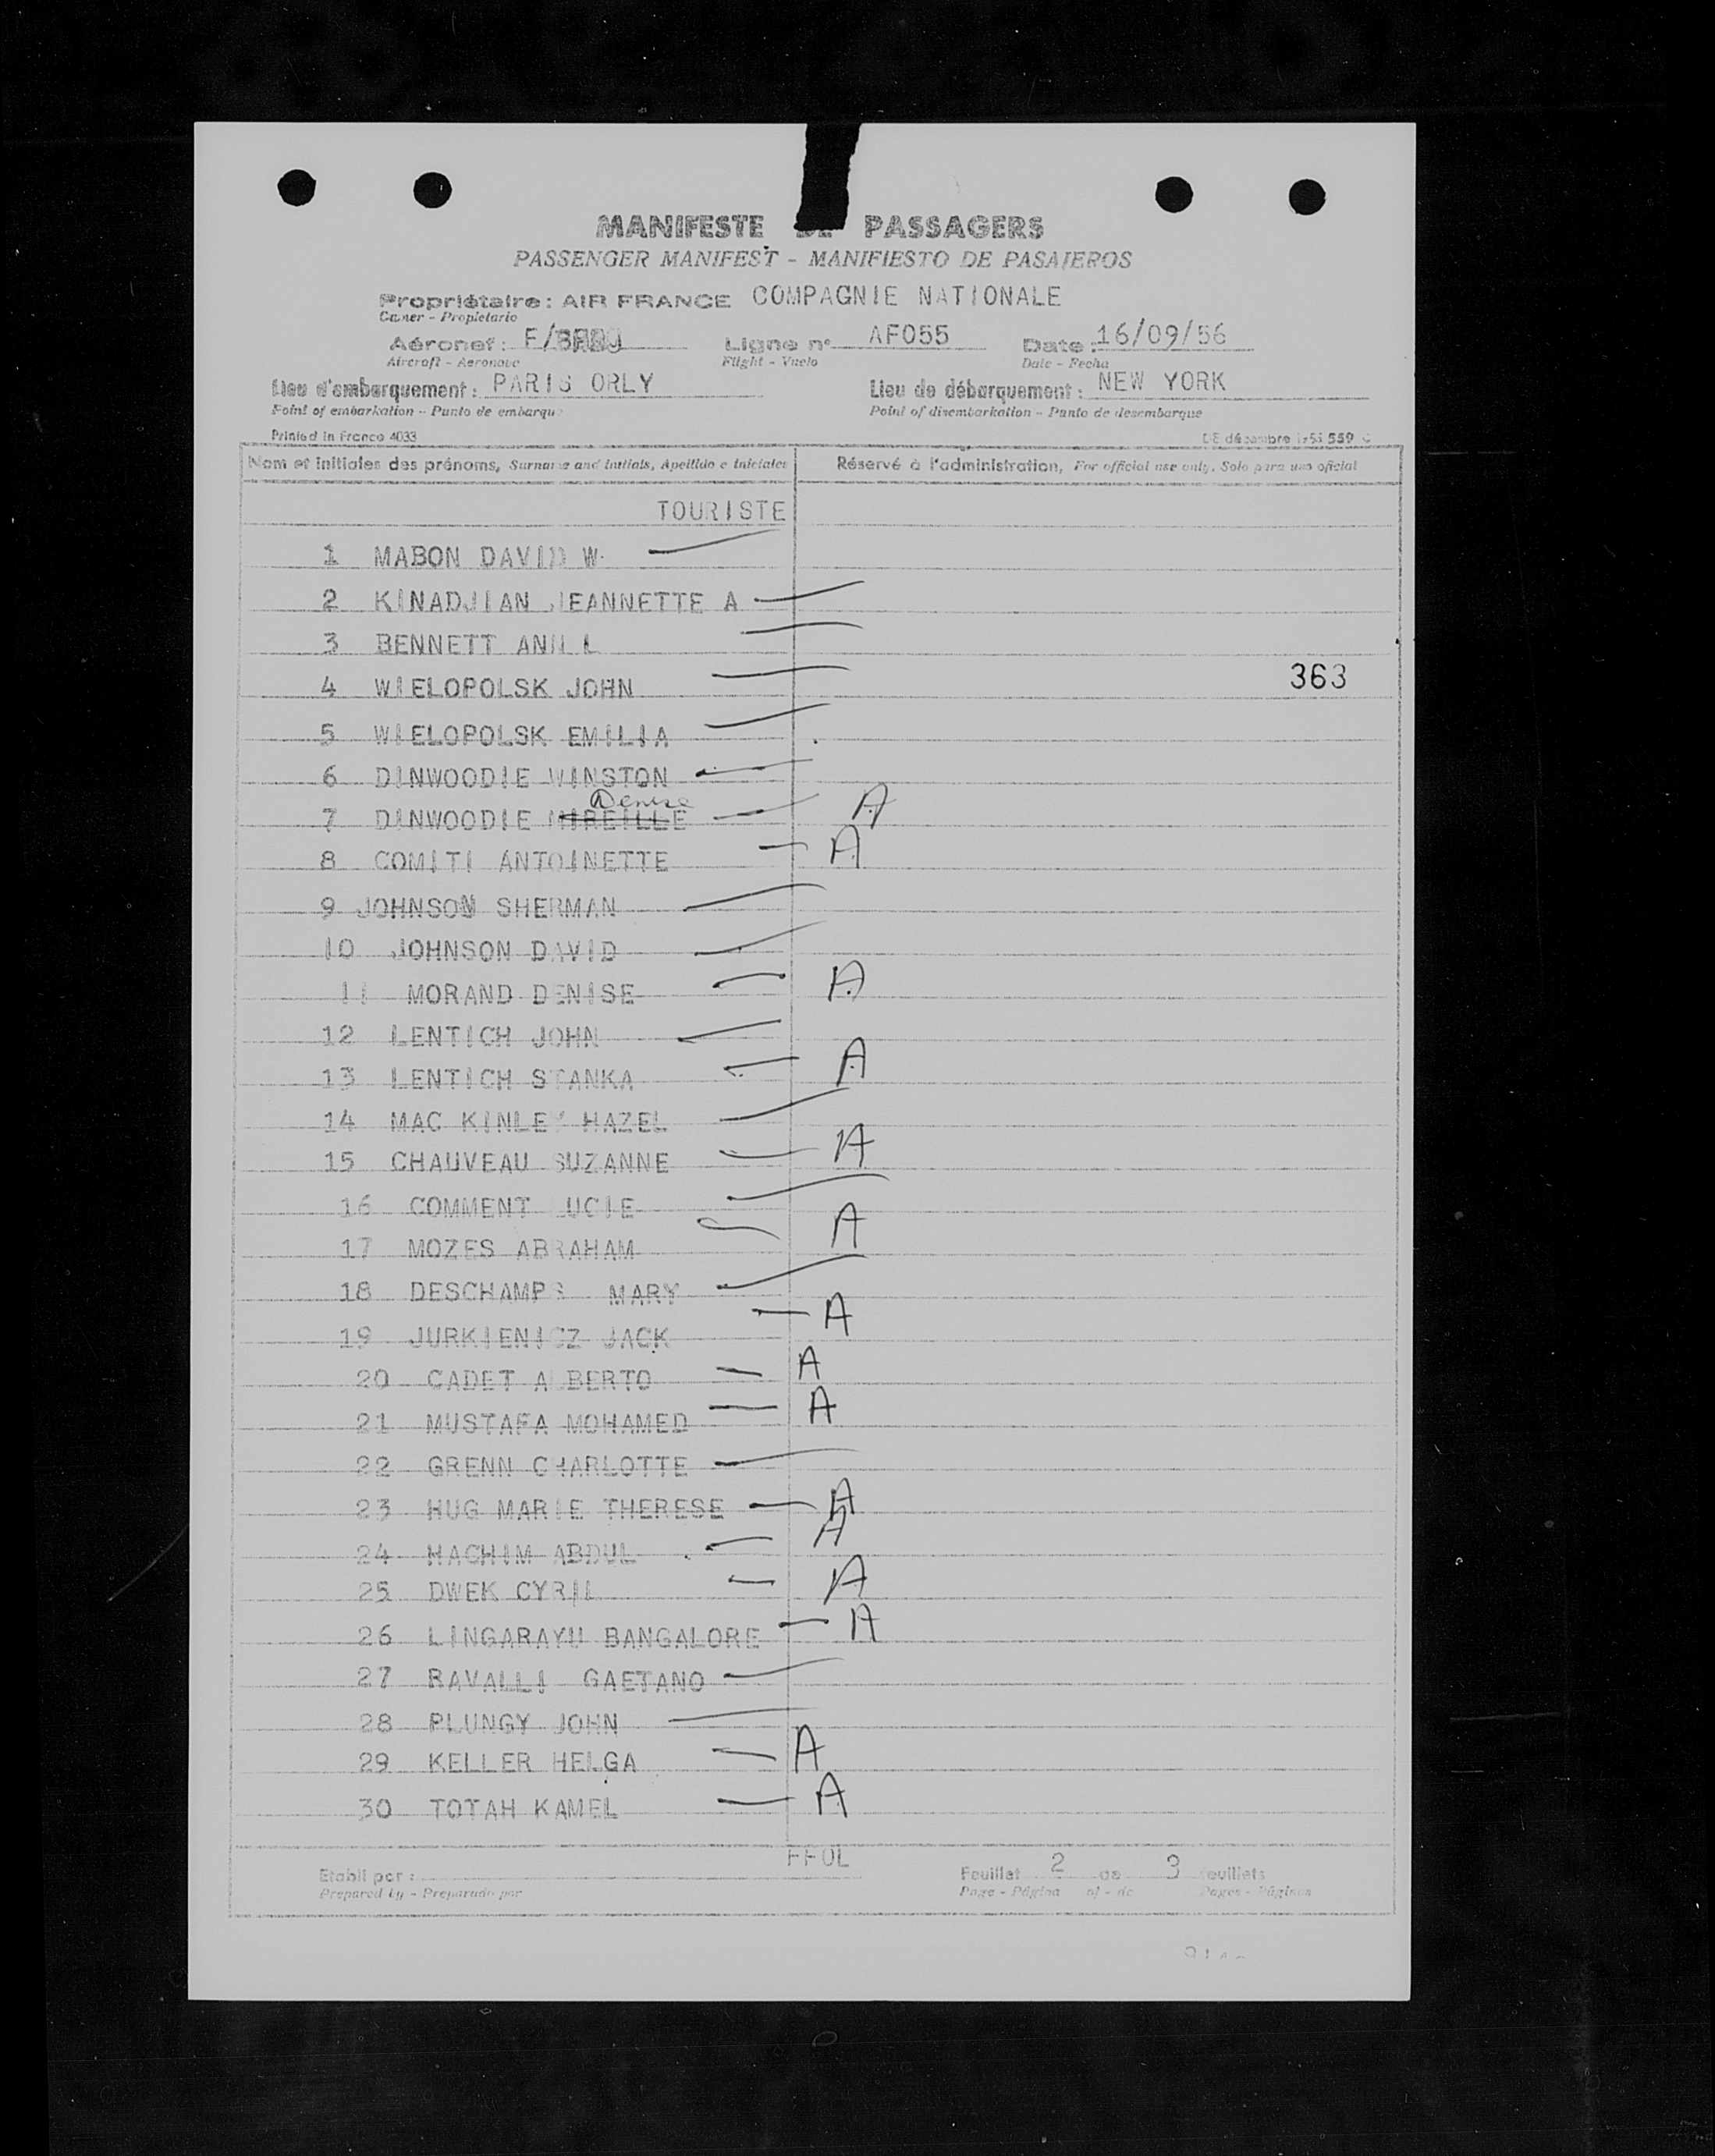 MANIFESTE DE PASSAGERS
PASSENGER MANIFEST - MANIFIESTO DE PASAJEROS
Propriétaire: AIR FRANCE COMPAGNIE NATIONALE
Owner - Propietario
Aéronef: F/ Ligne n° AF055 Date: 16/09/56
Aircraft - Aeronave Flight - Vuelo Date - Fecha
Lieu d'embarquement: PARIS ORLY Lieu de débarquement: NEW YORK
Point of embarkation - Punto de embarque Point of disembarkation - Punto de desembarque
Printed in France 4033 DE décembre 1953 559 C
Nom et initiales des prénoms, Surname and initials, Apellido e iniciales Réservé à l'administration, For official use only, Solo para uso oficial
TOURISTE
1 MABON DAVID W.
2 KINADJIAN JEANNETTE A
3 BENNETT ANN L
363
4 WIELOPOLSK JOHN
5 WIELOPOLSK EMILIA
6 DINWOODIE WINSTON
Denise
7 DINWOODIE MIREILLE A
8 COMITI ANTOINETTE A
9 JOHNSON SHERMAN
10 JOHNSON DAVID
11 MORAND DENISE A
12 LENTICH JOHN
13 LENTICH STANKA A
14 MAC KINLEY HAZEL
15 CHAUVEAU SUZANNE A
16 COMMENT LUCIE
17 MOZES ABRAHAM A
18 DESCHAMPS MARY
19 JURKIENICZ JACK A
20 CADET ALBERTO A
21 MUSTAFA MOHAMED A
22 GRENN CHARLOTTE
23 HUG MARIE THERESE A
24 HACHIM ABDUL A
25 DWEK CYRIL A
26 LINGARAYU BANGALORE A
27 RAVALLI GAETANO
28 PLUNGY JOHN
29 KELLER HELGA A
30 TOTAH KAMEL A
FFOL
Etabli par: Feuillet 2 de 3 feuillets
Prepared by - Preparado por Page - Página of - de Pages - Páginas